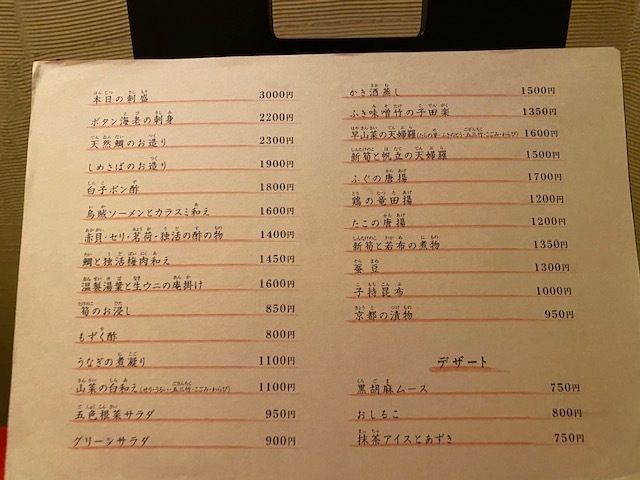 本日の刺盛 3000円
ボタン海老の刺身 2200円
天然鯛のお造り 2300円
しめさばのお造り 1900円
白子ポン酢 1800円
烏賊ソーメンとカラスミ和え 1600円
赤貝・セリ・茗荷・独活の酢の物 1400円
鯛と独活梅肉和え 1450円
温製湯葉と生ウニの庵掛け 1600円
筍のお浸し 850円
もずく酢 800円
うなぎの煮凝り 1100円
山菜の白和え(せり・うるい・五三竹・こごみ・わらび) 1100円
五色根菜サラダ 950円
グリーンサラダ 900円
かき酒蒸し 1500円
ふき味噌竹の子田楽 1350円
早山菜の天婦羅(たらの芽・ふきのとう・五三竹・こごみ・わらび) 1600円
新筍と帆立の天婦羅 1500円
ふぐの唐揚 1700円
鶏の竜田揚 1200円
たこの唐揚 1200円
新筍と若布の煮物 1350円
蚕豆 1300円
子持昆布 1000円
京都の漬物 950円
デザート
黒胡麻ムース 750円
おしるこ 800円
抹茶アイスとあずき 750円